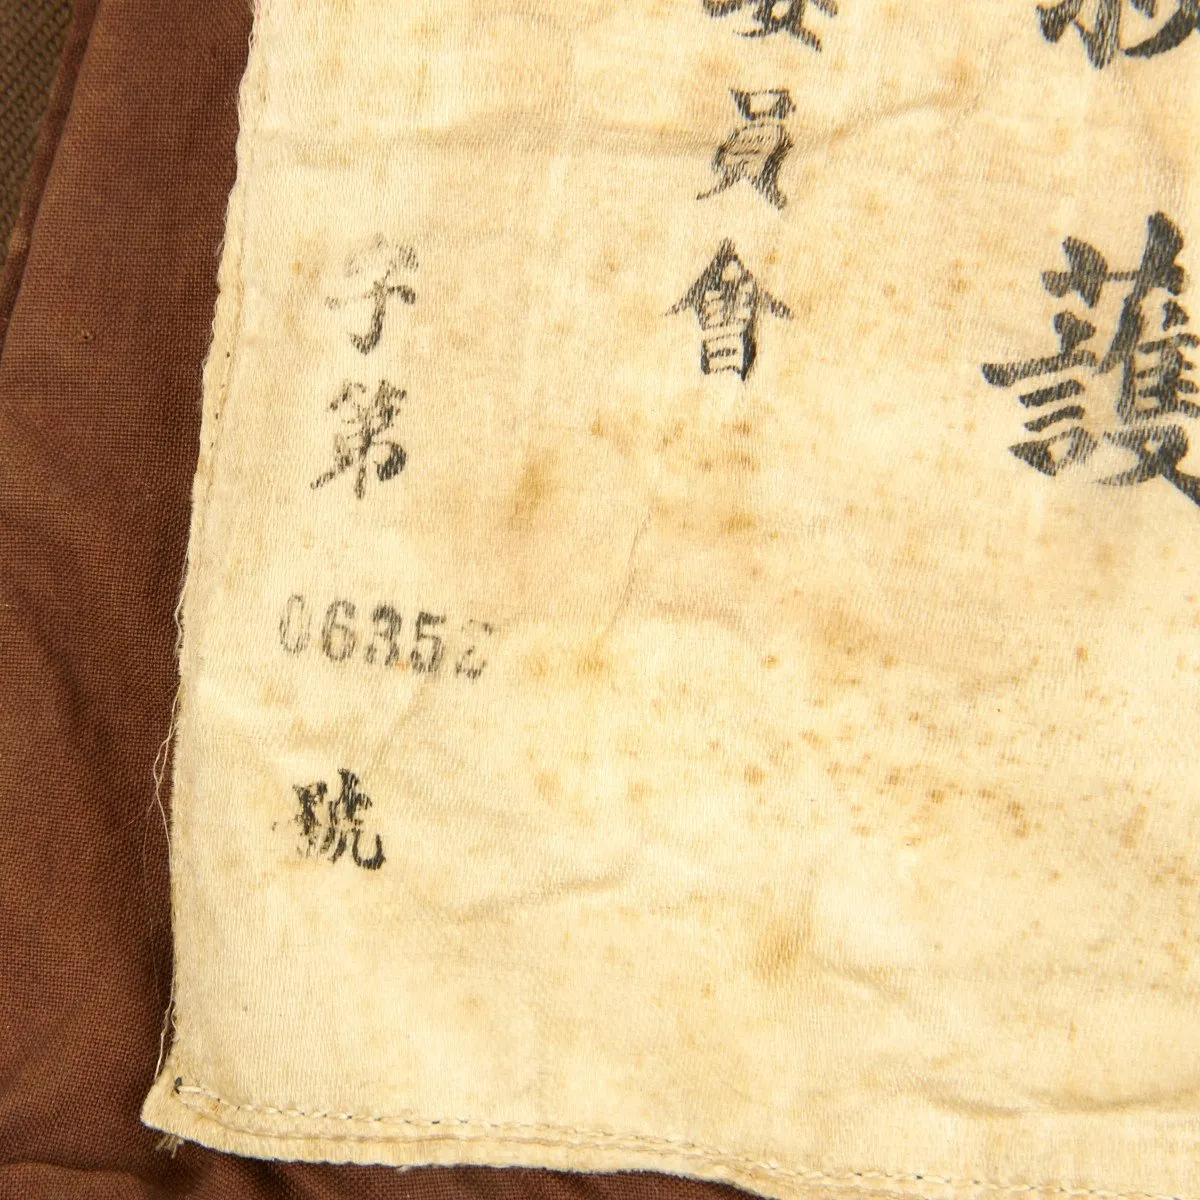 救護
委員會
字第
06352
號